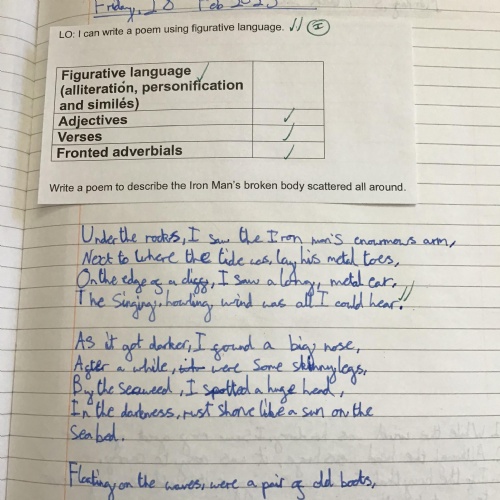 Friday, 28 Feb 2025
LO: I can write a poem using figurative language.
Figurative language
(alliteration, personification
and similes)
Adjectives
Verses
Fronted adverbials
Write a poem to describe the Iron Man's broken body scattered all around.
Under the rocks, I saw the Iron man's enourmous arm,
Next to where the tide was, lay his metal toes,
On the edge of a cliff, I saw a long, metal ear.
The Singing, howling wind was all I could hear.
As it got darker, I found a big nose,
After a while, were some skinny legs,
By the seaweed, I spotted a huge head,
In the darkness, rust shone like a sun on the
Sea bed.
Floating on the waves, were a pair of old boots,